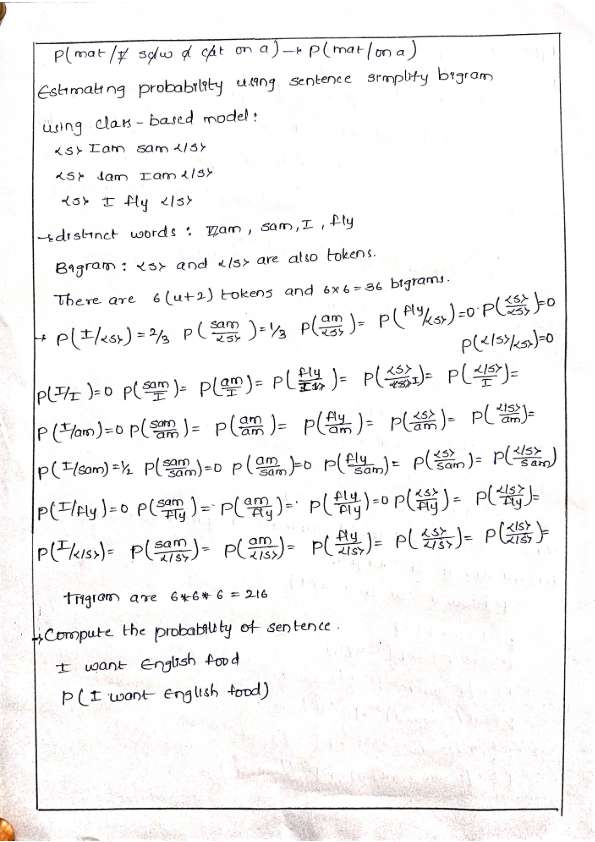 P(mat / I saw a cat on a) → P(mat/on a)
Estimating probability using sentence simplify bigram
using class-based model:
<s> I am sam </s>
<s> sam I am </s>
<s> I fly </s>
→ distinct words : am, sam, I, fly
Bigram : <s> and </s> are also tokens.
There are 6(4+2) tokens and 6×6=36 bigrams.
→ P(I/<s>) = 2/3 P(sam/<s>) = 1/3 P(am/<s>) = P(fly/<s>) = 0 P(<s>/<s>) = 0
P(</s>/<s>) = 0
P(I/I) = 0 P(sam/I) = P(am/I) = P(fly/I) = P(<s>/I) = P(</s>/I) =
P(I/am) = 0 P(sam/am) = P(am/am) = P(fly/am) = P(<s>/am) = P(</s>/am) =
P(I/sam) = 1/2 P(sam/sam) = 0 P(am/sam) = 0 P(fly/sam) = P(<s>/sam) = P(</s>/sam)
P(I/fly) = 0 P(sam/fly) = P(am/fly) = P(fly/fly) = 0 P(<s>/fly) = P(</s>/fly) =
P(I/</s>) = P(sam/</s>) = P(am/</s>) = P(fly/</s>) = P(<s>/</s>) = P(</s>/</s>) =
Trigram are 6*6*6 = 216
→ Compute the probability of sentence.
I want English food
P(I want English food)